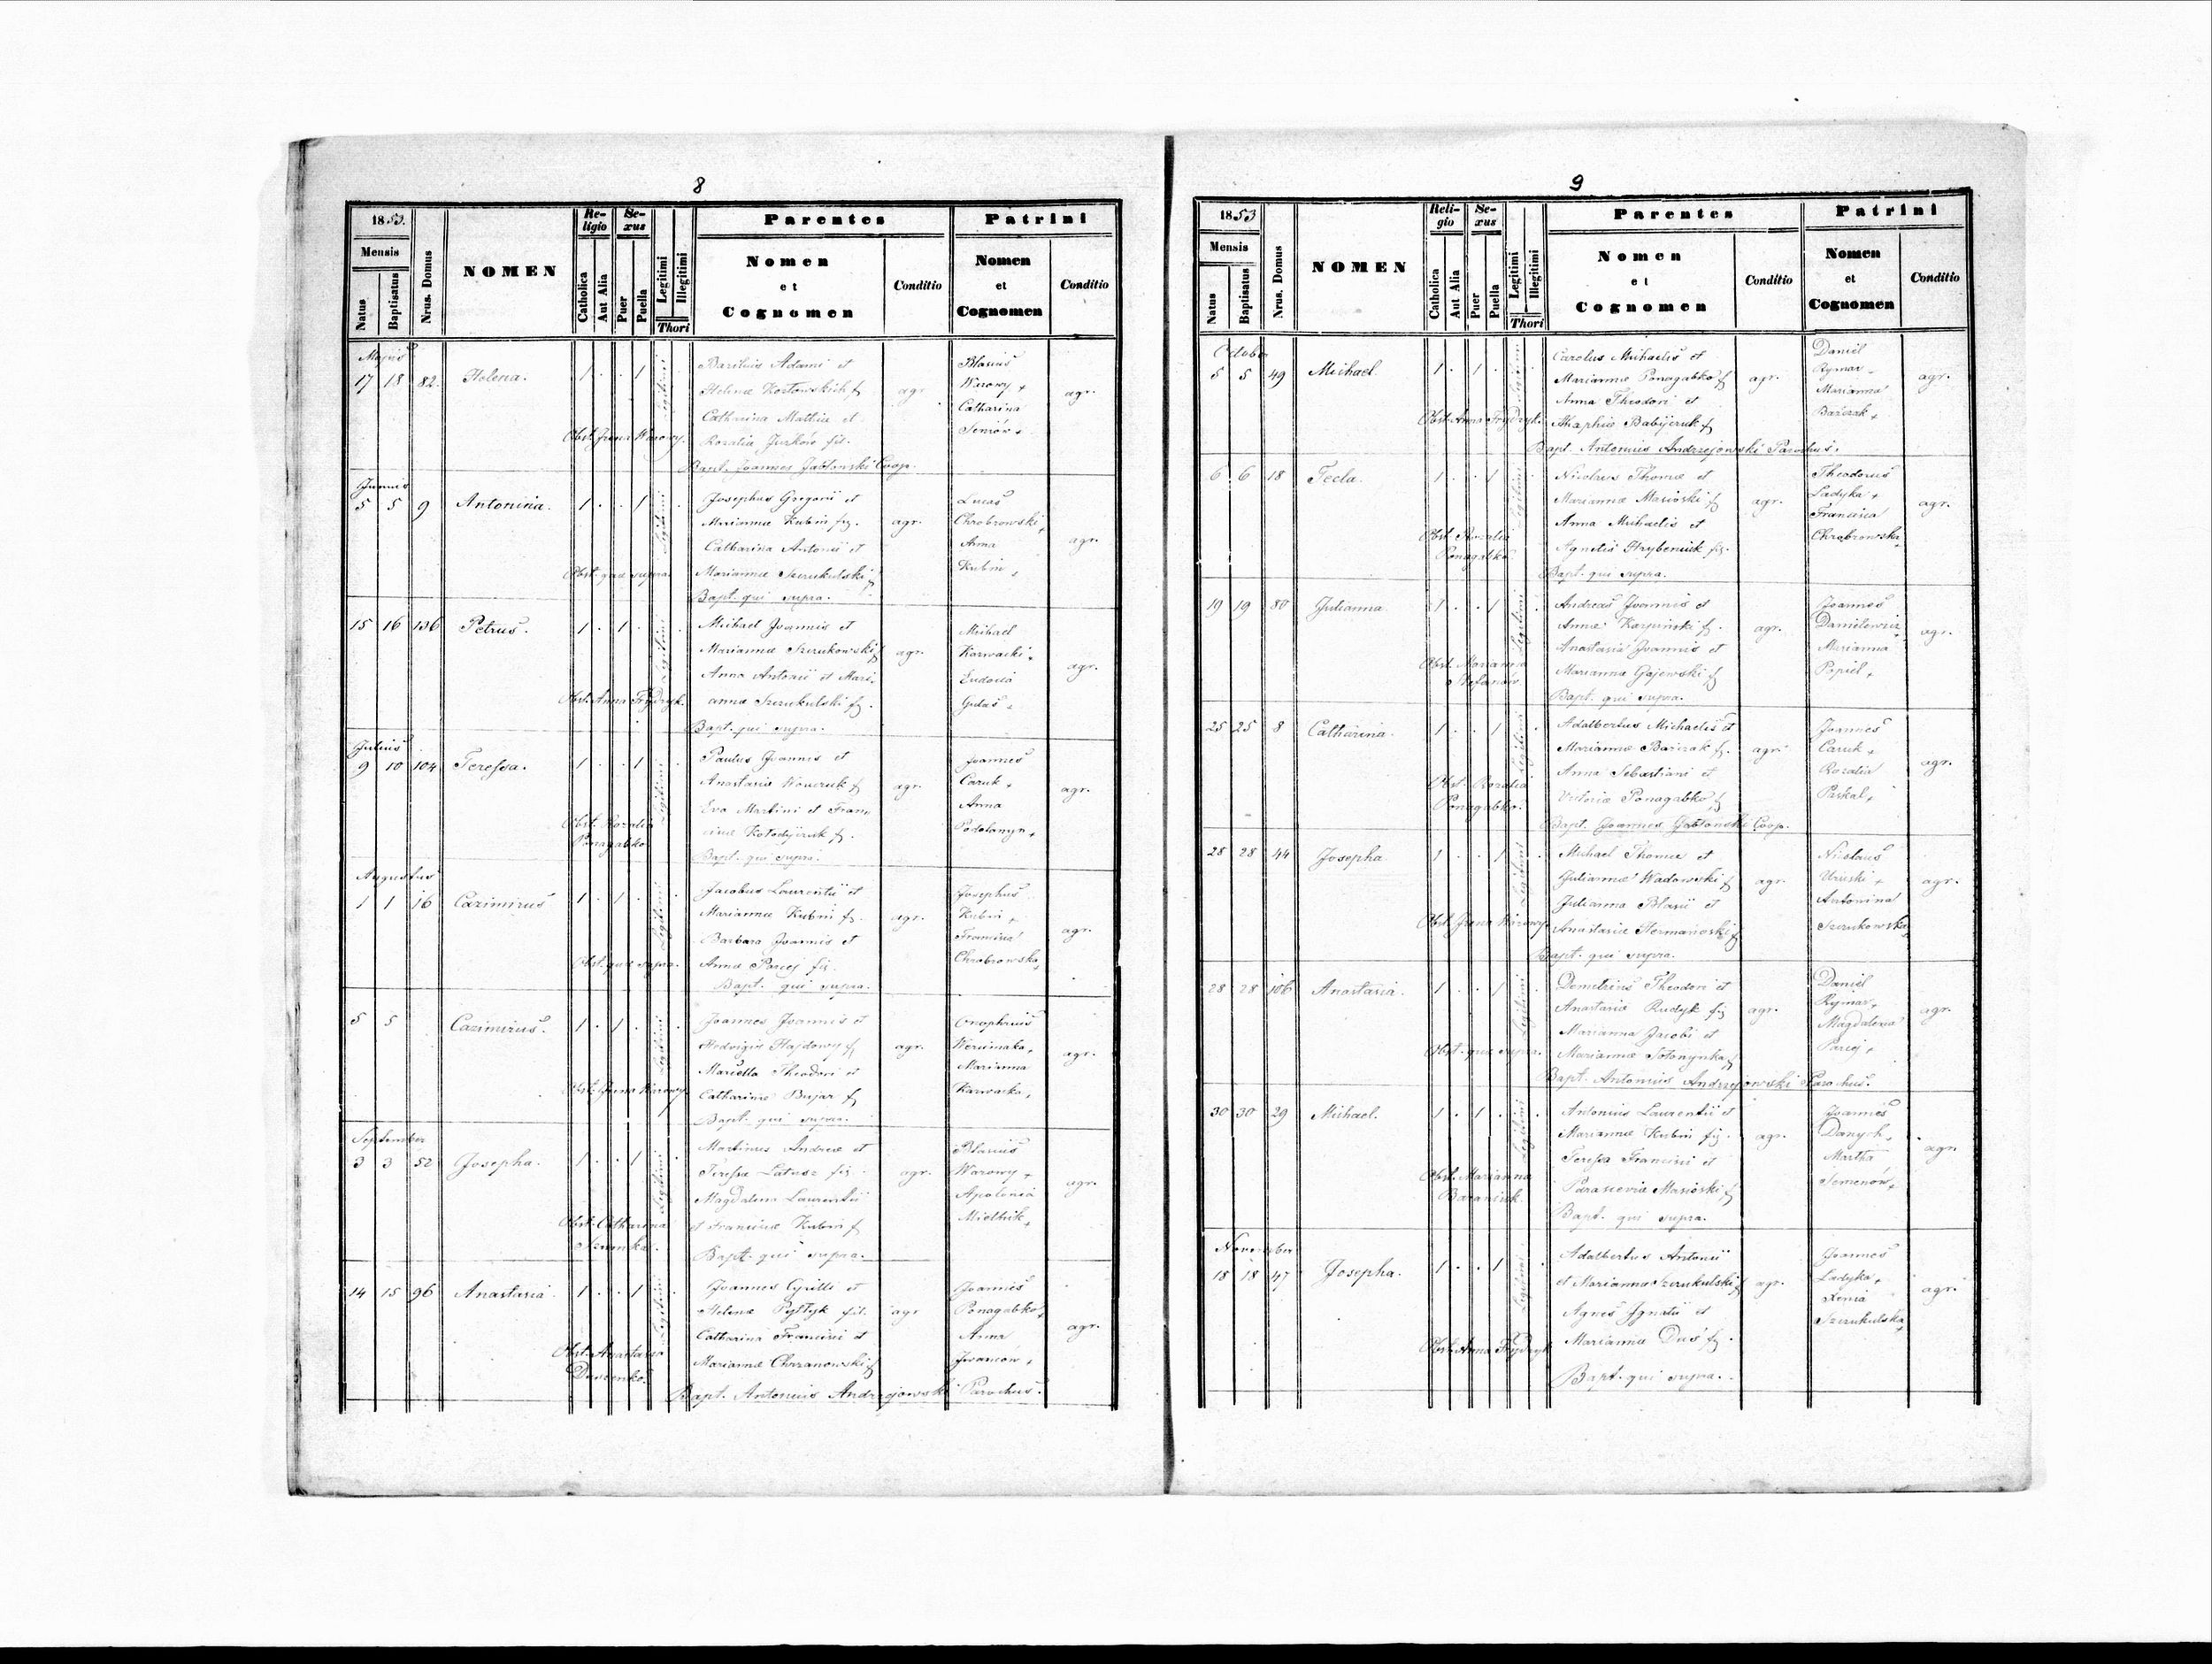 8
1853.
Mensis
Natus
Baptisatus
Nrus. Domus
NOMEN
Re-
ligio
Catholica
Aut Alia
Se-
xus
Puer
Puella
Legitimi
Illegitimi
Thori
Parentes
Nomen
et
Cognomen
Conditio
Patrini
Nomen
et
Cognomen
Conditio
Majus
17 18 82. Helena. 1 . . 1 Legitimi .
Basilius Adami et
Helenæ Kozłowskich f
Catharina Mathiæ et
Rozaliæ Jurków fil.
agr
Blasius
Warowy +
Catharina
Seniów +
agr.
Obst. Irena Warowy.
Bapt. Joannes Jabłonski Coop.
Junius
5 5 9 Antonina. 1 . . 1 Legitimi .
Josephus Gregorii et
Mariannæ Kubin fg.
Catharina Antonii et
Mariannæ Szerukulski f
agr.
Lucas
Chrobrowski +
Anna
Kubin +
agr.
Obst. quæ supra.
Bapt. qui supra.
15 16 136 Petrus. 1 . 1 . Legitimi .
Michael Joannis et
Mariannæ Szerukowski f
Anna Antonii et Mari-
annæ Szerukulski fg.
agr.
Michael
Karwacki +
Eudocia
Gudas +
agr.
Obst. Anna Frydryk.
Bapt. qui supra.
Julius
9 10 104 Teressa. 1 . . 1 Legitimi .
Paulus Joannis et
Anastasiæ f
Eva Martini et Fran-
ciscæ Kołodijczuk fg.
agr.
Joannes
Caruk +
Anna
Podolanyn +
agr.
Obst. Rozalia
Ponagabko
Bapt. qui supra.
Augustus
1 1 16 Cazimirus 1 . 1 . Legitimi
Jacobus Laurentii et
Mariannæ Kubin fg.
Barbara Joannis et
Annæ Parcej fil.
agr.
Josephus
Kubin +
Francisca
Chrobrowska +
agr.
Obst. quæ supra.
Bapt. qui supra.
5 5 Cazimirus. 1 . 1 . Legitimi
Joannes Joannis et
Hedvigis Hajdowy f
Marcella Theodori et
Catharinæ Bujar f
agr.
Onophrius
Marianna
Karwacka +
agr.
Obst. Irena Warowy.
Bapt. qui supra.
September
3 3 52 Josepha. 1 . . 1 Legitimi .
Martinus Andreæ et
Teressæ Latusz fig.
Magdalena Laurentii
et Franciscæ Kubin f
agr.
Blasius
Warowy +
Apolonia
Mielnik +
agr.
Obst. Catharina
Bapt. qui supra.
14 15 96 Anastasia 1 . . 1 Legitimi .
Joannes Cyrilli et
Helenæ Pystyk fil.
Catharina Francisci et
Mariannæ Chrzanowski f
agr
Joannes
Ponagabko +
Anna
Iwanców +
agr.
Obst. Anastasia
Bapt. Antonius Andrzejowski Parochus.
9
1853
Mensis
Natus
Baptisatus
Nrus. Domus
NOMEN
Reli-
gio
Catholica
Aut Alia
Se-
xus
Puer
Puella
Legitimi
Illegitimi
Thori
Parentes
Nomen
et
Cognomen
Conditio
Patrini
Nomen
et
Cognomen
Conditio
October
5 5 49 Michael. 1 . 1 . Legitimi
Carolus Michaelis et
Mariannæ Ponagabko f
Anna Theodori et
Babijczuk f
agr.
Daniel
Rymar +
Marianna
Barczak +
agr.
Obst. Anna Frydryk.
Bapt. Antonius Andrzejowski Parochus.
6 6 18 Tecla. 1 . . 1 Legitimi .
Nicolaus Thomæ et
Mariannæ Masioski f
Anna Michaelis et
Agnetis Hrybeniuk fg.
agr.
Theodorus
Ladyka +
Francisca
Chrobrowska +
agr.
Obst. Rozalia
Ponagabko
Bapt. qui supra.
19 19 80 Julianna. 1 . . 1 Legitimi .
Andreas Joannis et
Annæ Karpinski f.
Anastasia Joannis et
Mariannæ Gajewski f
agr.
Joannes
Danilewicz +
Marianna
Popiel +
agr.
Obst. Marianna
Stefanów.
Bapt. qui supra.
25 25 8 Catharina. 1 . . 1 Legitimi .
Adalbertus Michaelis et
Mariannæ Barczak f.
Anna Sebastiani et
Victoriæ Ponagabko f
agr.
Joannes
Caruk +
Rozalia
Paskal +
agr.
Obst. Rozalia
Ponagabko.
Bapt. Joannes Jabłonski Coop.
28 28 44 Josepha. 1 . . 1 Legitimi .
Michael Thomæ et
Juliannæ Wadowski f
Julianna Blasii et
Anastasiæ Hermanowski f
agr.
Nicolaus
Uruski +
Antonina
Szerukowska +
agr.
Obst. Irena Warowy.
Bapt. qui supra.
28 28 106 Anastasia. 1 . . 1 Legitimi
Demetrius Theodori et
Anastasiæ Rudyk fg
Marianna Jacobi et
Mariannæ Sotonynka f
agr.
Daniel
Rymar +
Magdalena
Parcej +
agr.
Obst. quæ supra.
Bapt. Antonius Andrzejowski Parochus.
30 30 29 Michael. 1 . 1 . Legitimi .
Antonius Laurentii et
Mariannæ Kubin fig.
Teressa Francisci et
Parasceviæ Masioski f
agr.
Joannes
Danych +
Martha
Semenów +
agr.
Obst. Marianna
Baraniuk.
Bapt. qui supra.
November
18 18 47 Josepha. 1 . . 1 Legitimi .
Adalbertus Antonii
et Mariannæ Szerukulski f
Agnes Ignatii et
Mariannæ Dus fg.
agr.
Joannes
Ladyka +
Xenia
Szerukulska +
agr.
Obst. Anna Frydryk
Bapt. qui supra.